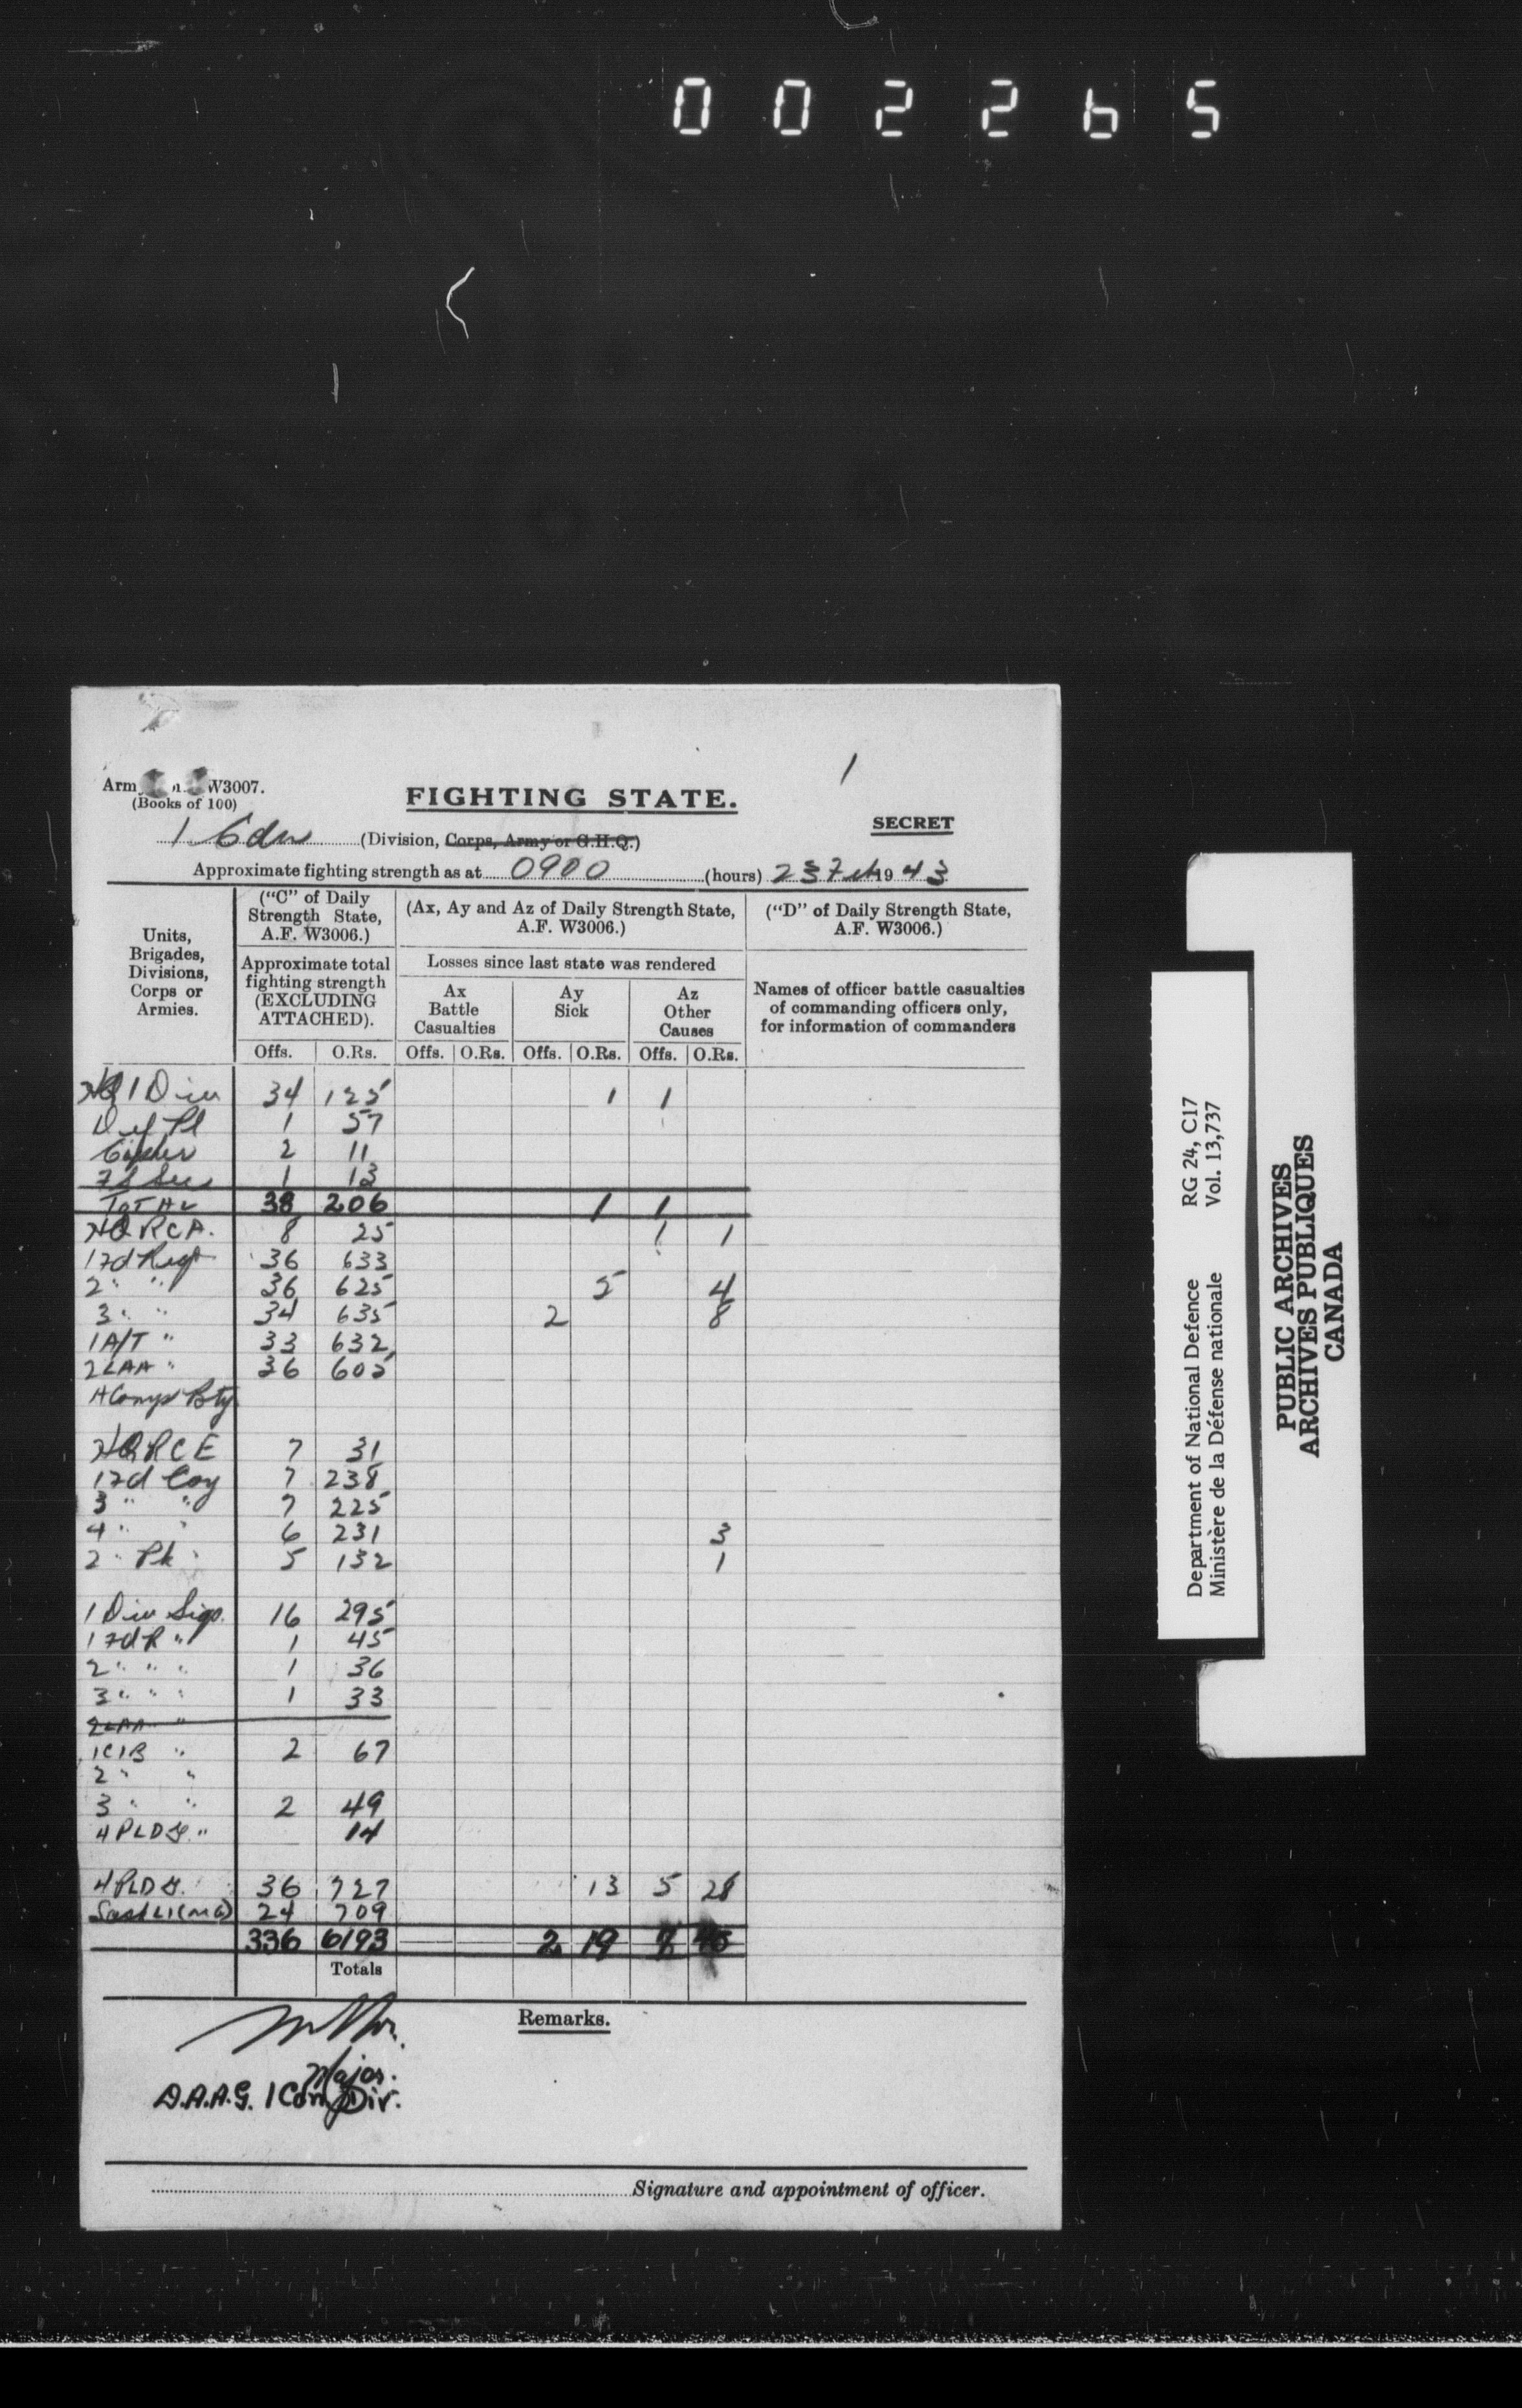 002265
1
Army W3007.
(Books of 100)
FIGHTING STATE.
SECRET
1 Cdn (Division, Corps, Army or G.H.Q.)
Approximate fighting strength as at 0900 (hours) 23 Feb 1943
Units, Brigades, Divisions, Corps or Armies.
("C" of Daily Strength State, A.F. W3006.)
(Ax, Ay and Az of Daily Strength State, A.F. W3006.)
("D" of Daily Strength State, A.F. W3006.)
Approximate total fighting strength (EXCLUDING ATTACHED).
Losses since last state was rendered
Names of officer battle casualties of commanding officers only, for information of commanders
Ax Battle Casualties
Ay Sick
Az Other Causes
Offs. O.Rs. Offs. O.Rs. Offs. O.Rs. Offs. O.Rs.
HQ 1 Div 34 125 1 1
Def Pl 1 57
Cipher 2 11
FS Sec 1 13
TOTAL 38 206 1 1
HQ RCA. 8 25 1 1
1 Fd Regt 36 633
2 " " 36 625 5 4
3 " " 34 635 2 8
1 A/T " 33 632
2 LAA " 36 605
A Comp Bty
HQ RCE 7 31
1 Fd Coy 7 238
3 " " 7 225
4 " " 6 231 3
2 " Pk " 5 132 1
1 Div Sigs. 16 295
1 Fd R " 1 45
2 " " " 1 36
3 " " " 1 33
2 LAA "
1 CIB " 2 67
2 " "
3 " " 2 49
4 PLDG " 14
4 PLDG. 36 727 13 5 28
Sask LI (MG) 24 709
336 6193 2 19 7 45
Totals
Remarks.
Major.
D.A.A.G. 1 Cdn Div.
Signature and appointment of officer.
Department of National Defence RG 24, C17
Ministère de la Défense nationale Vol. 13,737
PUBLIC ARCHIVES
ARCHIVES PUBLIQUES
CANADA